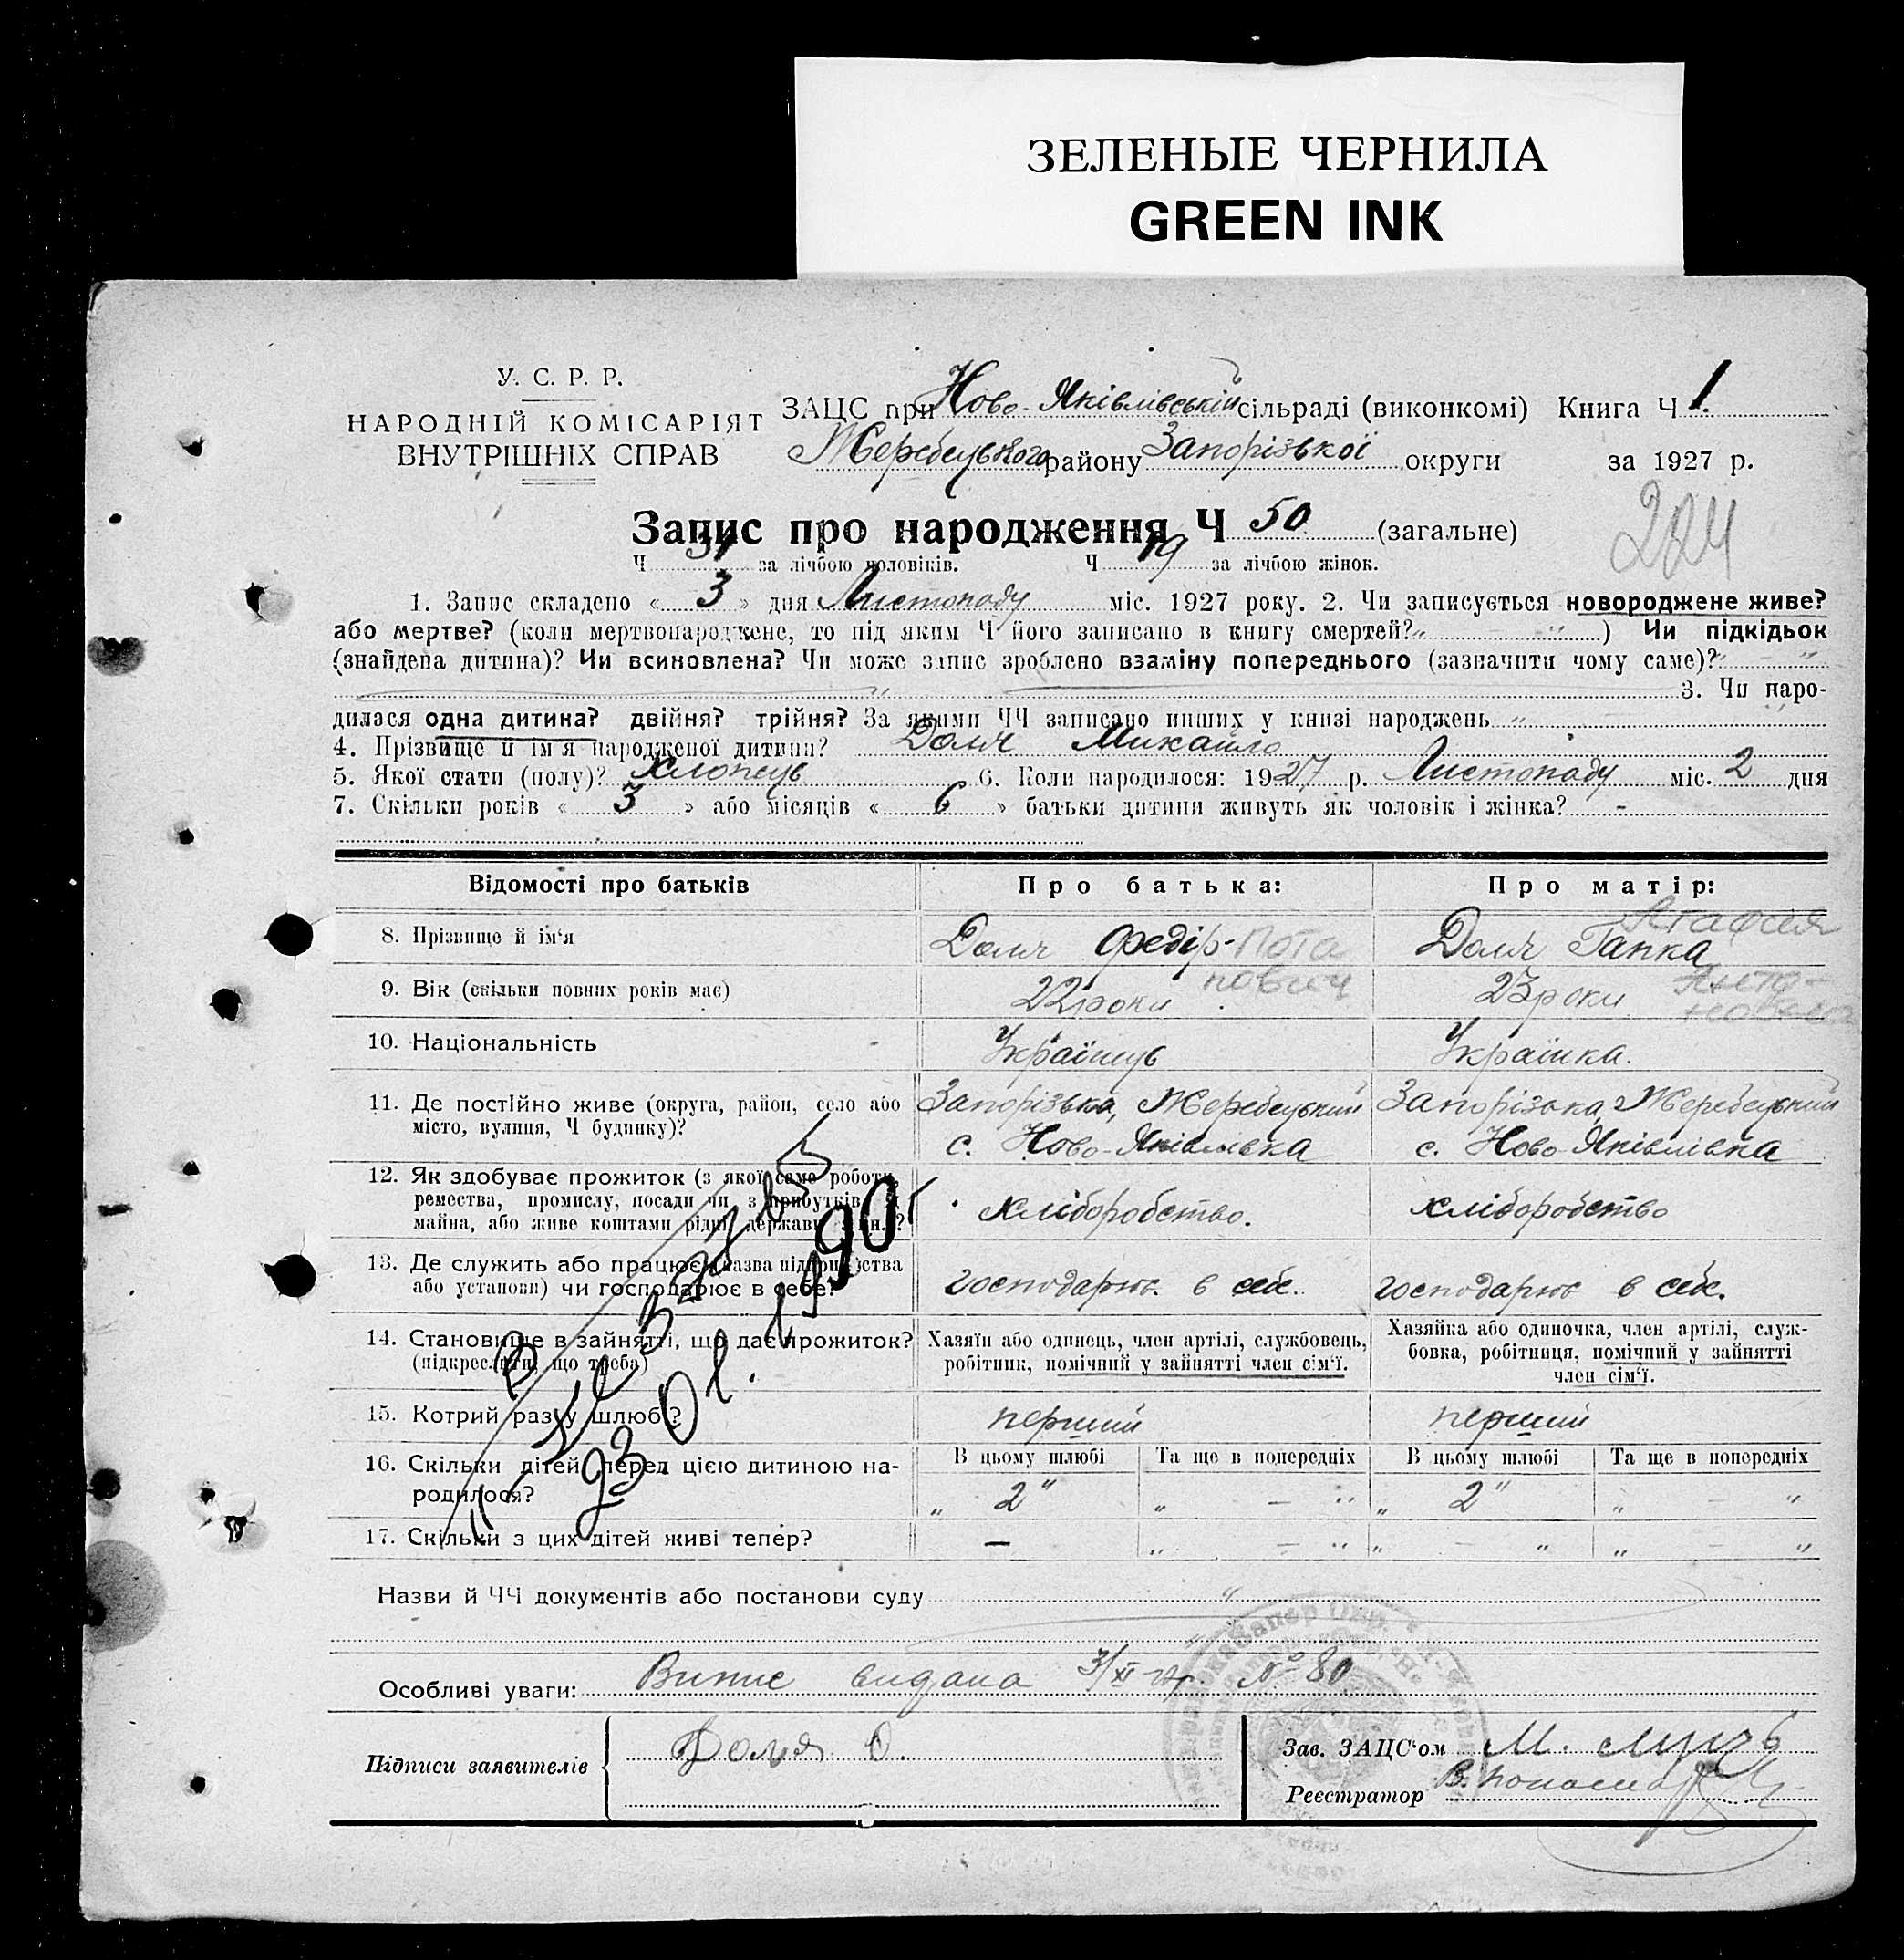 ЗЕЛЕНЫЕ ЧЕРНИЛА
GREEN INK
У. С. Р. Р.
НАРОДНІЙ КОМІСАРІЯТ
ВНУТРІШНІХ СПРАВ
ЗАЦС при Ново-Яківлівській сільраді (виконкомі) Книга Ч 1.
Жеребецького району Запорізької округи за 1927 р.
224
Запис про народження Ч 50 (загальне)
Ч 31 за лічбою чоловіків. Ч 19 за лічбою жінок.
1. Запис складено « 3 » дня Листопаду міс. 1927 року. 2. Чи записується новороджене живе?
або мертве? (коли мертвонароджене, то під яким Ч його записано в книгу смертей? „ - „ ) Чи підкідьок
(знайдена дитина)? Чи всиновлена? Чи може запис зроблено взаміну попереднього (зазначити чому саме)? „ - „
„ 3. Чи наро-
дилася одна дитина? двійня? трійня? За якими ЧЧ записано инших у книзі народжень „ „
4. Прізвище й ім'я народженої дитини? Доля Михайло
5. Якої стати (полу)? Хлопець 6. Коли народилося: 1927 р. Листопаду міс. 2 дня
7. Скільки років « 3 » або місяців « 6 » батьки дитини живуть як чоловік і жінка? -
Відомості про батьків Про батька: Про матір:
8. Прізвище й ім'я Доля Федір- Пота пович Доля Гапка Агафия Анто-новна
9. Вік (скільки повних років має) 22 роки 23 роки
10. Національність Українець Українка.
11. Де постійно живе (округа, район, село або Запорізька, Жеребецький Запорізька, Жеребецький
місто, вулиця, Ч будинку)? с. Ново-Яківлівка с. Ново-Яківлівка
12. Як здобуває прожиток (з якої саме роботи,
ремества, промислу, посади чи з прибутків з хліборобство. хліборобство
майна, або живе коштами рідні, держави й ин.?
13. Де служить або працює (назва підприємства
або установи) чи господарює в себе? господарює в себе. господарює в себе.
14. Становище в зайнятті, що дає прожиток? Хазяїн або одинець, член артілі, службовець, Хазяйка або одиночка, член артілі, служ-
(підкреслити, що треба) робітник, помічний у зайнятті член сім'ї. бовка, робітниця, помічний у зайнятті
член сім'ї.
15. Котрий раз у шлюбі? перший перший
16. Скільки дітей перед цією дитиною на- В цьому шлюбі Та ще в попередніх В цьому шлюбі Та ще в попередніх
родилося? „ 2 " „ - " „ 2 " „ "
17. Скільки з цих дітей живі тепер? - „ - " „ - " „ - "
Назви й ЧЧ документів або постанови суду "
Особливі уваги: Випис видана 3/XI-27р. № 80
Підписи заявителів Доля О. Зав. ЗАЦС'ом М.
Реєстратор В.